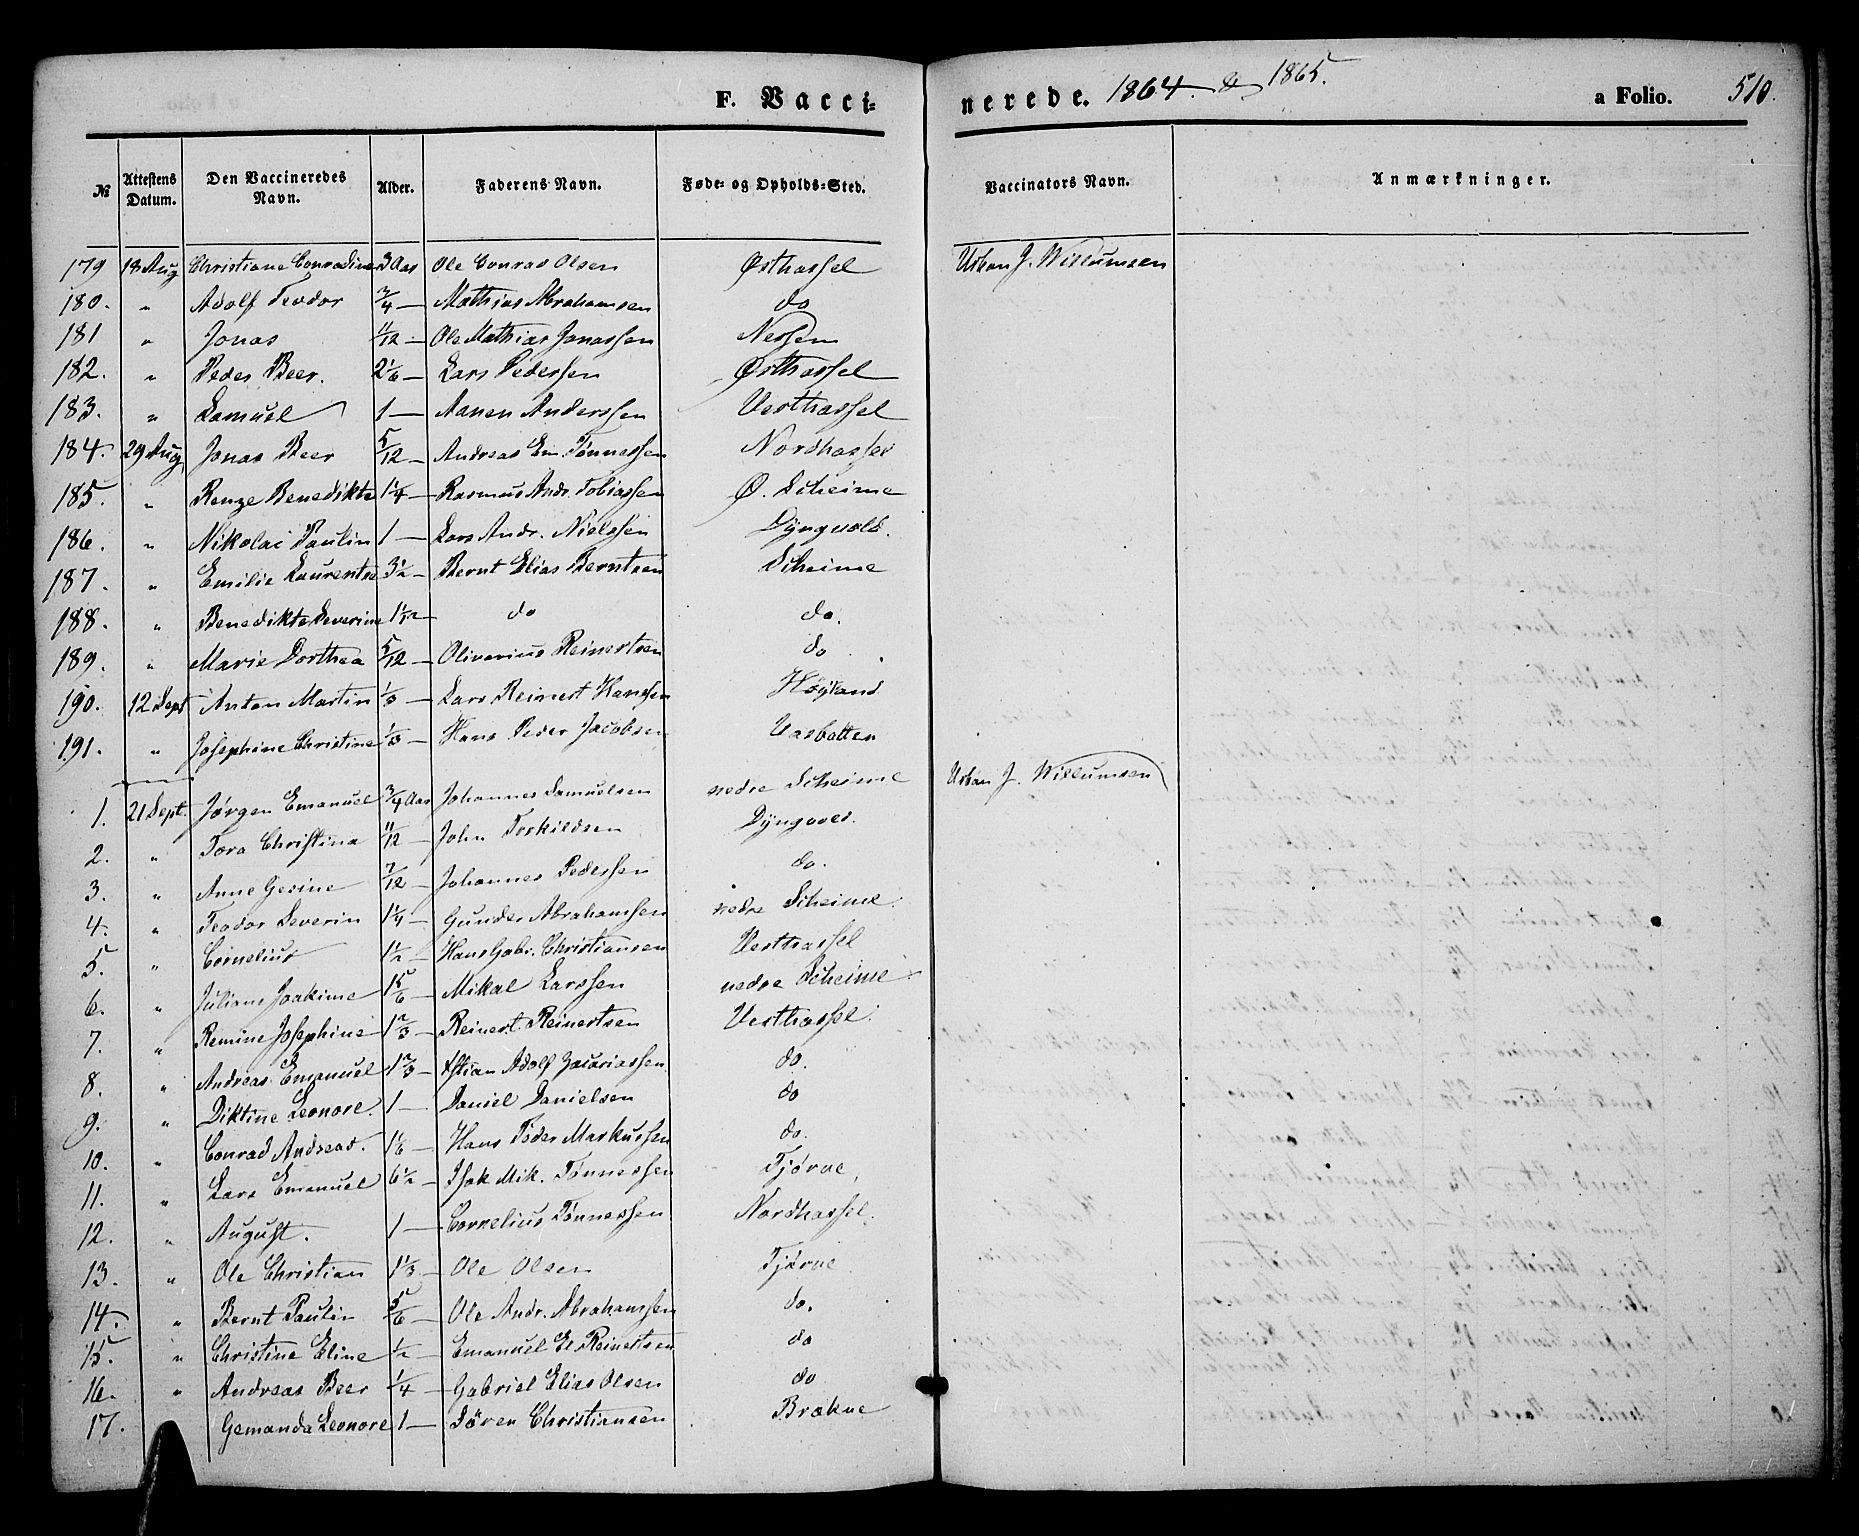 F. Vacci= nerede. 1864 & 1865. a Folio. 510.
№ Attestens Datum. Den Vaccineredes Navn. Alder. Faderens Navn. Føde- og Opholds-Sted. Vaccinators Navn. Anmærkninger.
179 18 Aug Christiane Conradine 3 Aar Ole Conrad Olsen Østhassel Urban J. Willumsen
180. " Adolf Teodor 3/4 — Mathias Abrahamsen do
181 " Jonas 11/12 — Ole Mathias Jonassen Nessem
182. " Peder Beer. 2 1/6 — Lars Pedersen Østhassel
183. " Samuel 1 — Aanen Anderssen Vesthassel
184. 29 Aug Jonas Beer 5/12 — Andreas Em. Tønnessen Nordhassel
185. " Renze Benedikte 1 1/4 — Rasmus Andr. Tobiassen Ø. Scheime
186. " Nikolai Paulin 1 — Lars Andr. Nielssen Dyngvold.
187. " Emilie Laurentse 3 1/2 — Bernt Elias Berntsen Scheime
188. " Benedikte Severine 1 1/12 — do do.
189. " Marie Dorthea 5/12 — Oliverius Reinertsen do
190. 12 Sept Anton Martin 1/3 — Lars Reinert Hanssen Høyland
191. " Josephine Christine 1/3 — Hans Peder Jacobsen Vasbotten
1. 21 Sept. Jørgen Emanuel 3/4 Aar Johannes Samuelsen nedre Scheime Urban J. Willumsen
2. " Tora Christina 11/12 — John Torkildsen Dyngvol.
3. " Anne Gesine 7/12 — Johannes Pederssen do.
4. " Teodor Severin 1 1/4 — Gunder Abrahamssen nedre Scheime.
5. " Cornelius 1 1/2 — Hans Gabr. Christiansen Vesthassel
6. " Juliane Joakime 1 5/6 — Mikal Larssen nedre Scheime
7. " Remine Josephine 1 2/3 — Reinert Reinertsen Vesthassel.
8. " Andreas Emanuel 1 2/3 — Stian Adolf Zacariassen do.
9. " Diktine Leonore. 1 — Daniel Danielsen do
10. " Conrad Andreas. 1 1/6 — Hans Peder Markussen do.
11. " Lars Emanuel 6 1/2 — Isak Mik. Tønnessen Tjørve,
12. " August. 1 — Cornelius Tønnessen Nordhassel.
13. " Ole Christian 1 1/3 — Ole Olsen Tjørve
14. " Bernt Paulin 5/6 — Ole Andr. Abrahamssen do.
15. " Christine Eline 1/2 — Emanuel El Reinertsen do
16. " Andreas Beer 1/4 — Gabriel Elias Olsen do
17. Gemanda Leonore 1 — Søren Christiansen Brækne